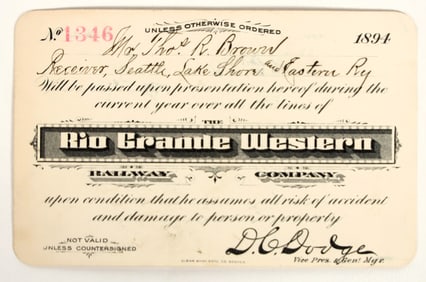 UNLESS OTHERWISE ORDERED
No. 1346 1894
Mr. Thos. R. Brown
Receiver, Seattle, Lake Shore and Eastern Ry
Will be passed upon presentation hereof during the
current year over all the lines of
THE
Rio Grande Western
RAILWAY COMPANY
upon condition that he assumes all risk of accident
and damage to person or property
NOT VALID
UNLESS COUNTERSIGNED
D. C. Dodge
Vice Pres. & Gen'l Mgr.